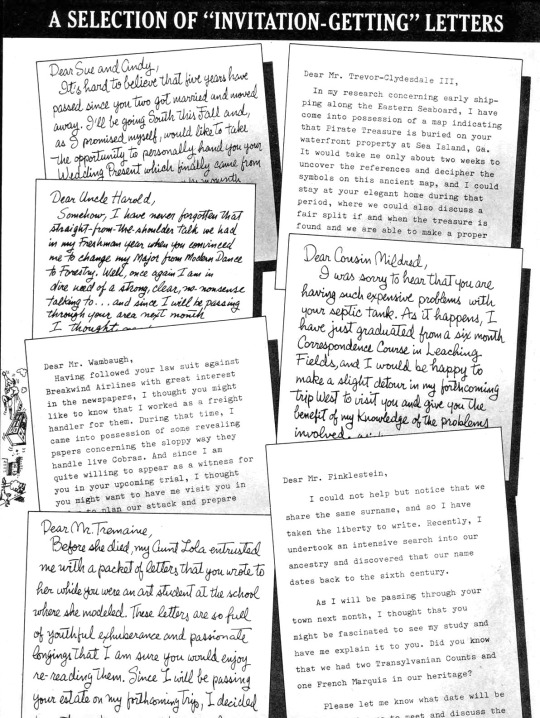 A SELECTION OF "INVITATION-GETTING" LETTERS
Dear Sue and Andy,
It's hard to believe that five years have
passed since you two got married and moved
away. I'll be going South this Fall and,
as I promised myself, would like to take
the opportunity to personally hand you your
Wedding Present which finally came from
Dear Mr. Trevor-Clydesdale III,
In my research concerning early ship-
ping along the Eastern Seaboard, I have
come into possession of a map indicating
that Pirate Treasure is buried on your
waterfront property at Sea Island, Ga.
It would take me only about two weeks to
uncover the references and decipher the
symbols on this ancient map, and I could
stay at your elegant home during that
period, where we could also discuss a
fair split if and when the treasure is
found and we are able to make a proper
Dear Uncle Harold,
Somehow, I have never forgotten that
straight-from-the-shoulder talk we had
in my Freshman year when you convinced
me to change my Major from Modern Dance
to Forestry. Well, once again I am in
dire need of a strong, clear, no-nonsense
talking to... and since I will be passing
through your area next month
I thought
Dear Cousin Mildred,
I was sorry to hear that you are
having such expensive problems with
your septic tank. As it happens, I
have just graduated from a six month
Correspondence Course in Leaching
Fields, and I would be happy to
make a slight detour in my forthcoming
trip West to visit you and give you the
benefit of my knowledge of the problems
involved.
Dear Mr. Wambaugh,
Having followed your law suit against
Breakwind Airlines with great interest
in the newspapers, I thought you might
like to know that I worked as a freight
handler for them. During that time, I
came into possession of some revealing
papers concerning the sloppy way they
handle live Cobras. And since I am
quite willing to appear as a witness for
you in your upcoming trial, I thought
you might want to have me visit you in
to plan our attack and prepare
Dear Mr. Finklestein,
I could not help but notice that we
share the same surname, and so I have
taken the liberty to write. Recently, I
undertook an intensive search into our
ancestry and discovered that our name
dates back to the sixth century.
As I will be passing through your
town next month, I thought that you
might be fascinated to see my study and
have me explain it to you. Did you know
that we had two Transylvanian Counts and
one French Marquis in our heritage?
Please let me know what date will be
to meet and discuss the
Dear Mr. Tremaine,
Before she died, my Aunt Lola entrusted
me with a packet of letters that you wrote to
her while you were an art student at the school
where she modeled. These letters are so full
of youthful exhuberance and passionate
longings that I am sure you would enjoy
re-reading them. Since I will be passing
your estate on my forthcoming trip, I decided